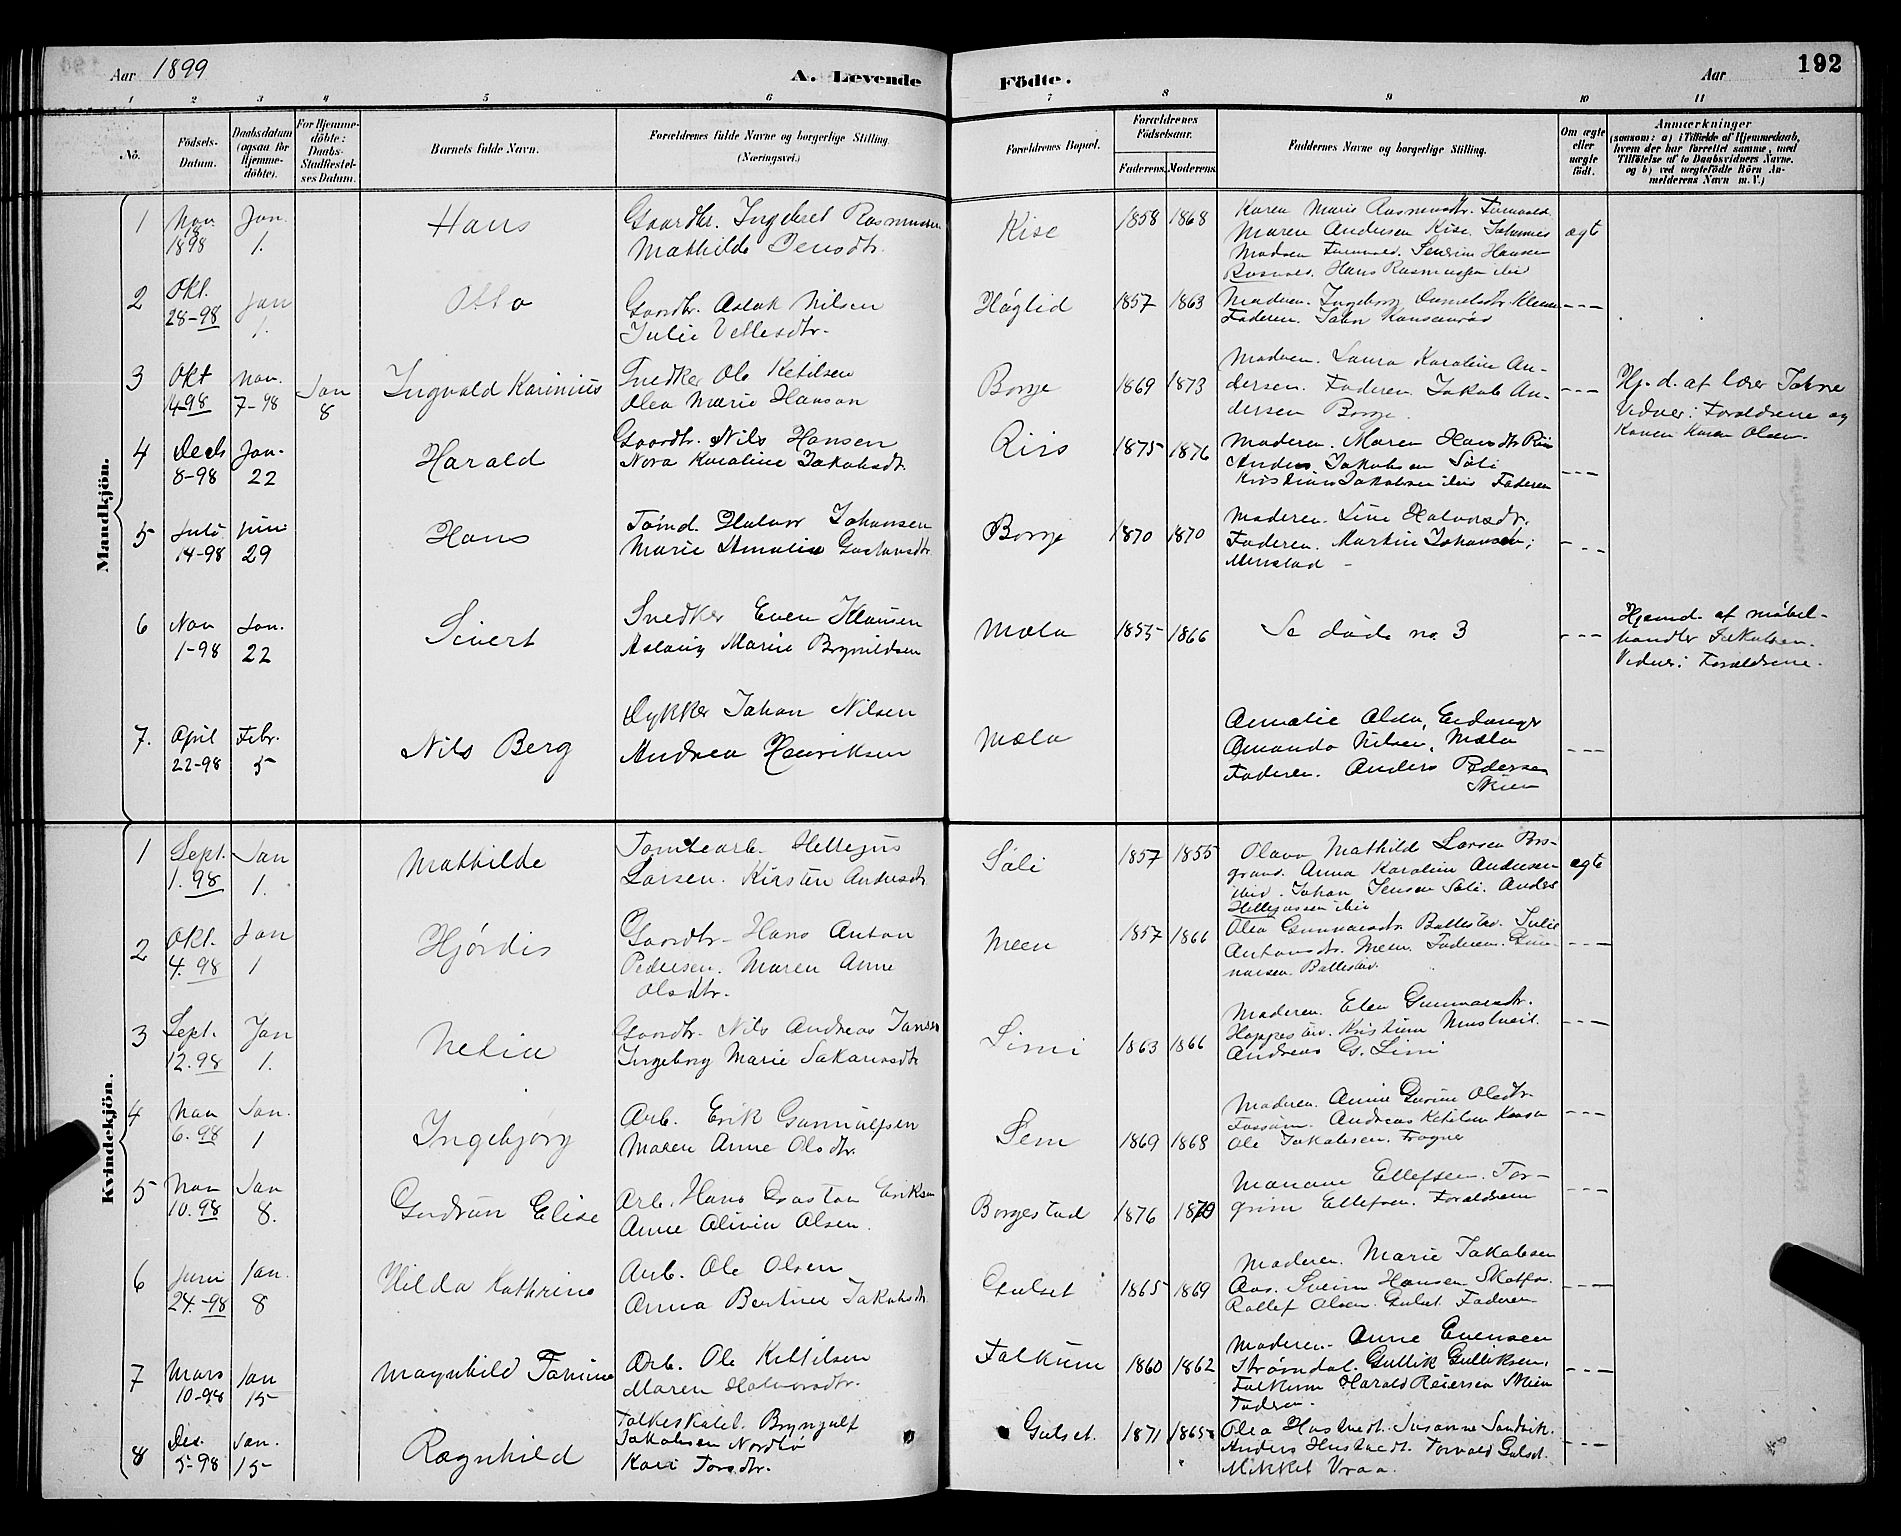 Aar 1899
A. Levende
Födte.
Aar
192
1 2 3 4 5 6 7 8 9 10 11
No.
Födsels-Datum.
Daabsdatum (ogsaa for Hjemme-döbte).
For Hjemme-döbte: Daabs-Stadfæstel-ses Datum.
Barnets fulde Navn.
Forældrenes fulde Navne og borgerlige Stilling. (Næringsvei.)
Forældrenes Bopæl.
Forældrenes Födselsaar.
Faderens. Moderens.
Faddernes Navne og borgerlige Stilling.
Om ægte eller uægte födt.
Anmærkninger
(saasom: a) i Tilfælde af Hjemmedaab,
hvem der har forrettet samme, med
Tilföielse af to Daabsvidners Navne,
og b) ved uægtefödte Börn An-
melderens Navn m. V.)
Mandkjön.
1 Nov. 1898 Jan. 1.
Hans
Gaardbr. Ingebret Rasmussen
Mathilde Jensdtr.
Kise 1858 1868
Karen Marie Rasmusdtr.
Maren Andersen Kise. Johannes
Madsen Severin Hansen
Hans Rasmussen ibid
ægte
2 Okt. 28-98 Jan 1.
Otto
Gaardbr. Aslak Nilsen
Julie Vetlesdtr.
Höglid 1857 1863
Moderen. Ingeborg
Faderen. John
---
3 Okt 14-98 Nov. 7-98 Jan 8
Ingvald Karinius
Snedker Ole Ketilsen
Olea Marie Hanson
Borge 1869 1873
Moderen. Laura Karoline An-
dersen. Faderen. Jakob An-
dersen Borge.
---
Hj.d. af lærer Tohne
Vidner: Forældrene og
Konen Karen Olsen.
4 Decb 8-98 Jan. 22
Harald
Gaardbr. Nils Hansen
Nora Karoline Jakobsdtr.
Riis 1875 1876
Moderen. Maren Hansdtr. Riis
Anders Jakobsen Söli
Kristian Jakobsen ibid Faderen
---
5 Juli 14-98 29
Hans
Tömd. Halvor Johansen
Marie Amalie Gustavsdtr.
Borge 1870 1870
Moderen. Line Halvorsdtr.
Faderen. Martin Johansen,
Menstad -
---
6 Nov 1-98 Jan. 22
Sivert
Snedker Even Klausen
Aslaug Marie Brynildsen
Mæla 1855 1866
Se döde no. 3
---
Hjemd. af möbel-
handler Jakobsen.
Vidner: Forældrene.
7. April 22-98 Febr. 5
Nils Berg
Dykker Johan Nilsen
Andrea Henriksen
Mæla
Amalie Olea, Eidanger
Amanda Nilsen, Mæla
Faderen. Anders Pedersen
Skien
---
Kvindekjön.
1 Sept. 1. 98 Jan 1.
Mathilde
Tomtearb. Hellegus
Larsen. Kirsten Andersdtr.
Söli 1857 1855
Olava Mathilde Larsen Pors-
grund. Anna Karoline Andersen
ibid. Johan Jensen Söli. Anders
Hellejussen ibid
ægte
2 Okt. 4. 98 Jan 1
Hjördis
Gaardbr. Hans Anton
Pedersen. Maren Anne
Olsdtr.
Meen 1857 1866
Olea Gunnarsdtr. Ballestad. Julie
Antonsdtr. Meen. Faderen. Gun-
narsen. Ballestad.
---
3 Sept. 12. 98 Jan 1.
Netia
Gaardbr. Nils Andreas Jansen
Ingeborg Marie Sakariasdtr.
Limi 1863 1866
Moderen. Elen Gunnarsdtr.
Hoppestad. Kristian
Andreas G. Limi
---
4 Nov 6. 98 Jan. 1
Ingebjörg
Arb. Erik Gunnulfsen
Maren Anne Olsdtr.
Sem 1869 1868
Moderen. Anne Gurine Olsdtr.
Fossum. Andreas Ketilsen
Ole Jakobsen. Frogner
---
5 Nov 10. 98 Jan 8.
Gudrun Elise
Arb. Hans Gustav Eriksen
Anne Olivia Olsen.
Borgestad 1876 1870
Mariane Ellefsen. Tor-
grim Ellefsen. Forældrene
---
6 Juni 24.-98 Jan. 8
Hilda Kathrine
Arb. Ole Olsen
Anna Bertine Jakobsdtr.
Gulset 1865 1869
Moderen. Marie Jakobsen
Aas. Hansen Skotfos.
Rollef Olsen. Gulset. Faderen
---
7 Mars 10-98 Jan 15
Magnhild Tomine
Arb. Ole Kittilsen
Maren Halvorsdtr.
Falkum 1860 1862
Moderen. Anne Evensen
Strömdal. Gullik Gulliksen.
Falkum Harald Reiersen Skien
Faderen.
---
8 Des. 5-98 Jan. 15
Ragnhild
Folkeskolel. Bryngulf
Jakobsen Nordbö
Kari Torsdtr.
Gulset. 1871 1865
Olea Hustvedt. Susanne Sandvik.
Anders Hustvedt. Torvald Gulset.
Mikkel Vraa.
---